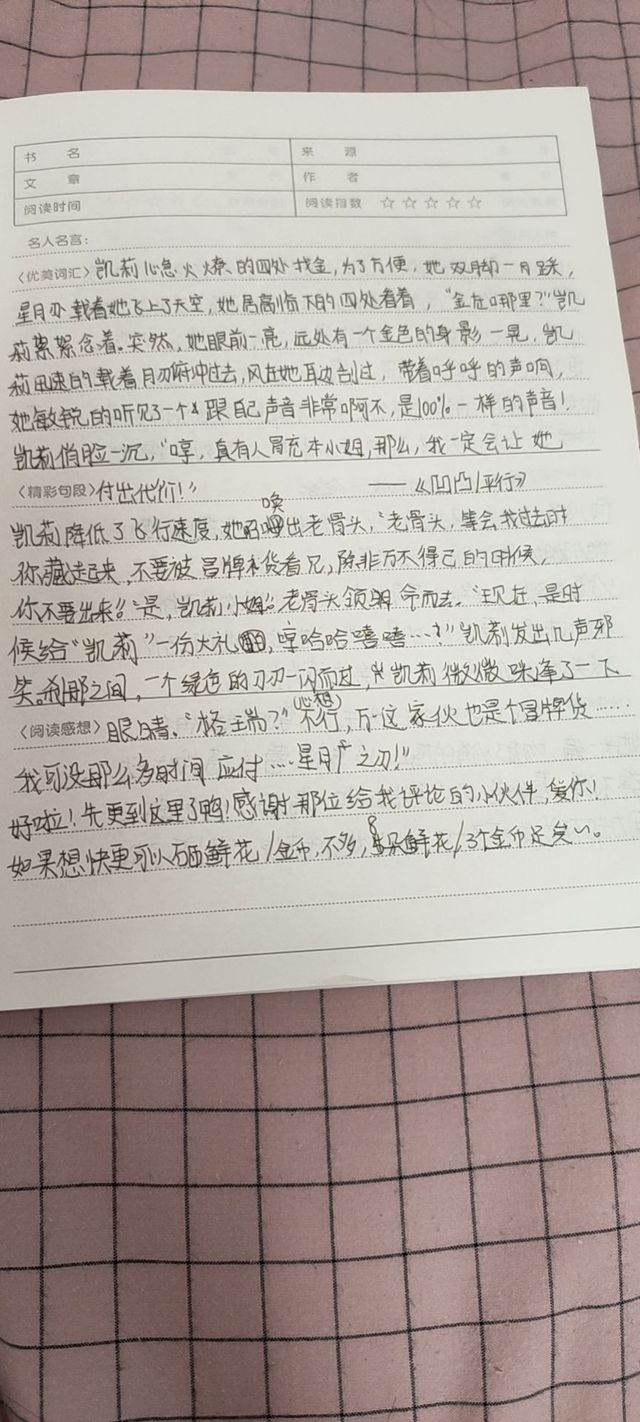 书 名 来 源
文 章 作 者
阅读时间 阅读指数 ☆☆☆☆☆
名人名言：
〈优美词汇〉凯莉心急火燎的四处找金，为了方便，她双脚一跃，
星月刃载着她飞上了天空，她居高临下的四处看着，“金在哪里？”凯
莉絮絮念着。突然，她眼前一亮，远处有一个金色的身影一晃，凯
莉迅速的载着月刃俯冲过去，风在她耳边刮过，带着呼呼的声响，
她敏锐的听见了一个跟自己声音非常啊不，是100%一样的声音！
凯莉俏脸一沉，“哼，真有人冒充本小姐，那么，我一定会让她
〈精彩句段〉付出代价！” ——《凹凸/平行》
凯莉降低了飞行速度，她召唤出老骨头，“老骨头，等会我过去时
你藏起来，不要被冒牌货看见，除非万不得已的时候，
你不要出来！”“是，凯莉小姐。”老骨头领命而去。“现在，是时
候给“凯莉”一份大礼，哼哈哈嘻嘻…！”凯莉发出几声邪
笑。刹那之间，一个绿色的刀刃一闪而过，凯莉微微眯了一下
〈阅读感想〉眼睛。“格瑞？”（心想）不行，万一这家伙也是个冒牌货……
我可没那么多时间应付…星月之刃！”
好啦！先更到这里了鸭！感谢那位给我评论的小伙伴，爱你！
如果想快更可以石西鲜花/金币，不多，8朵鲜花/3个金币足矣～。